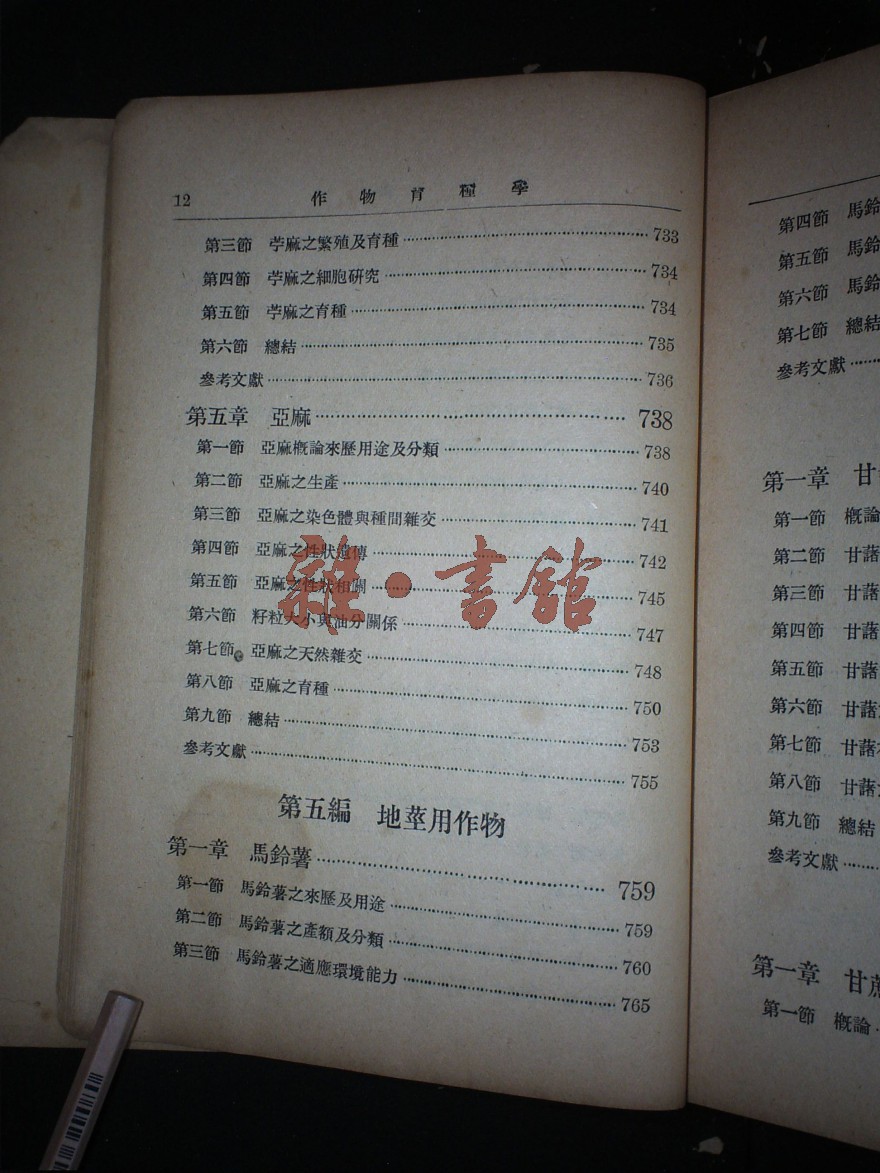 12 作物育種學
第三節 苧麻之繁殖及育種 733
第四節 苧麻之細胞研究 734
第五節 苧麻之育種 734
第六節 總結 735
參考文獻 736
第五章 亞麻 738
第一節 亞麻概論來歷用途及分類 738
第二節 亞麻之生產 740
第三節 亞麻之染色體與種間雜交 741
第四節 亞麻之性狀遺傳 742
第五節 亞麻之性狀相關 745
第六節 籽粒大小與油分關係 747
第七節 亞麻之天然雜交 748
第八節 亞麻之育種 750
第九節 總結 753
參考文獻 755
第五編 地莖用作物
第一章 馬鈴薯 759
第一節 馬鈴薯之來歷及用途 759
第二節 馬鈴薯之產額及分類 760
第三節 馬鈴薯之適應環境能力 765
雜·書館
第四節 馬鈴
第五節 馬鈴
第六節 馬鈴
第七節 總結
參考文獻
第一章 甘
第一節 概論
第二節 甘藷
第三節 甘藷
第四節 甘藷
第五節 甘藷
第六節 甘藷
第七節 甘藷
第八節 甘藷
第九節 總結
參考文獻
第一章 甘蔗
第一節 概論